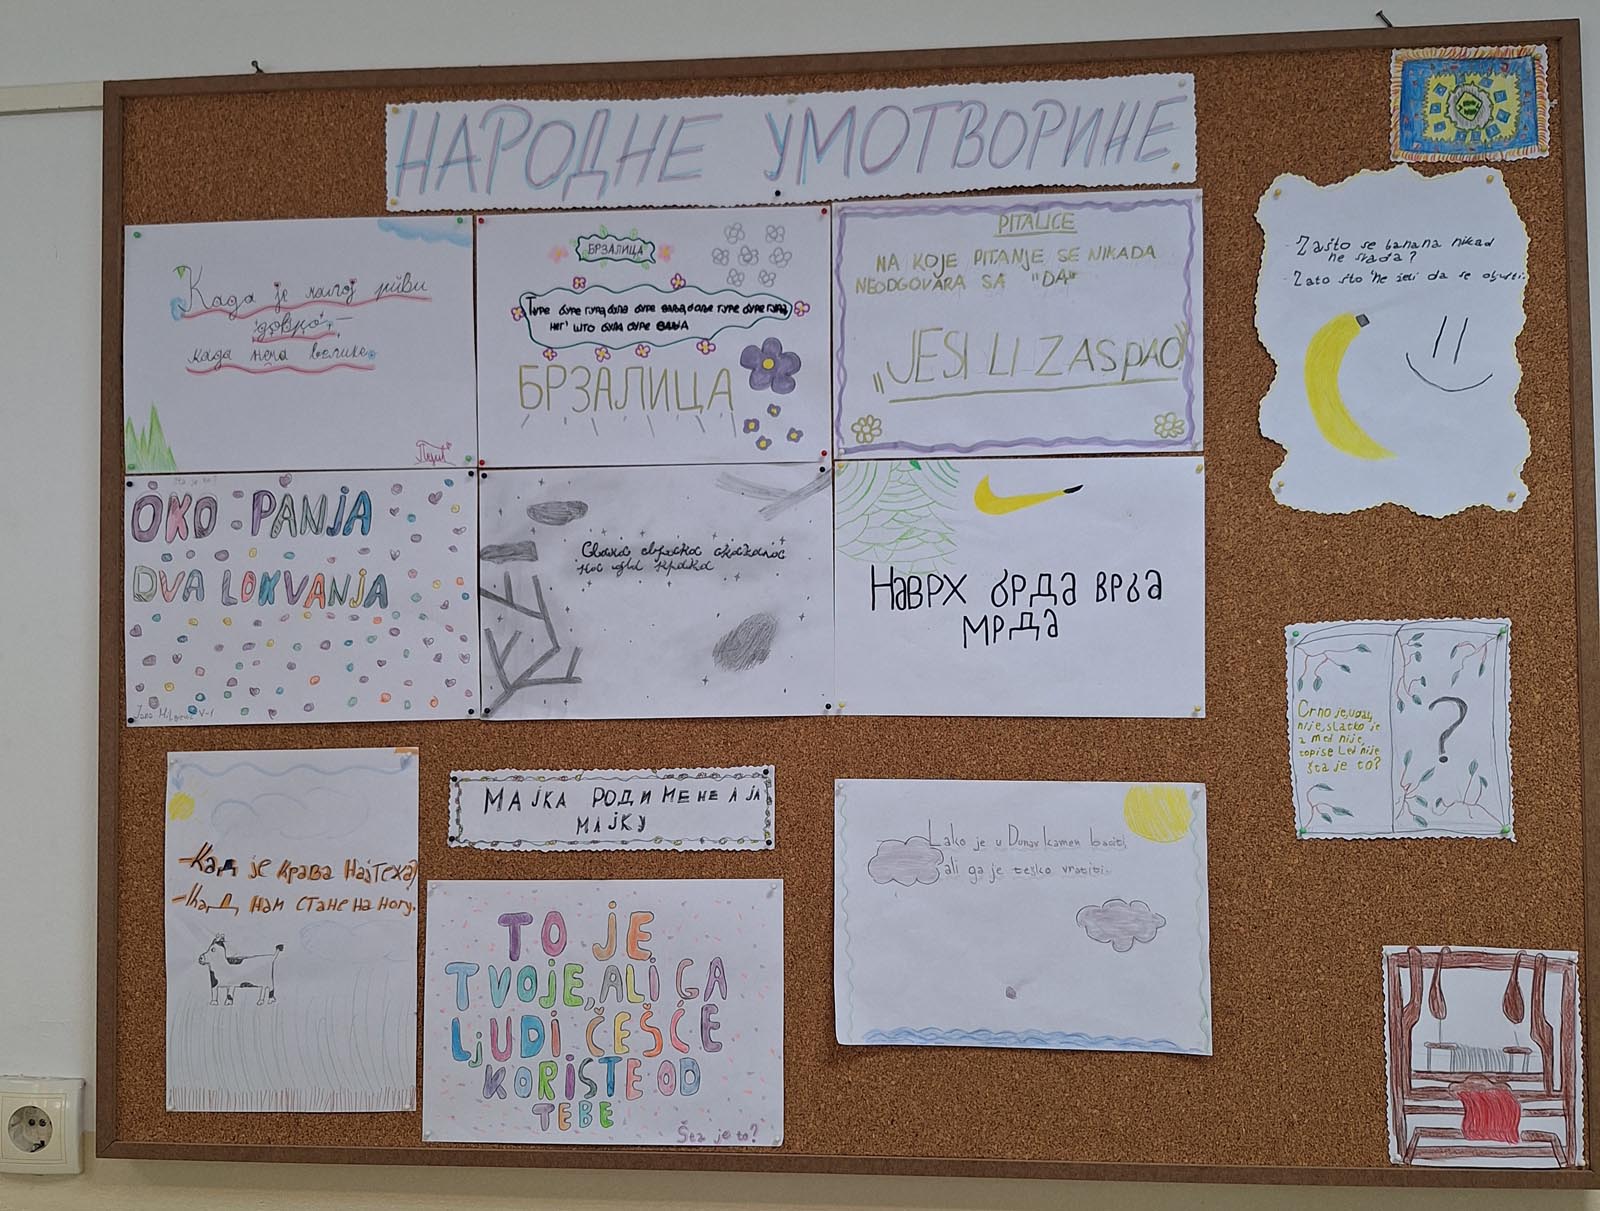 НАРОДНЕ УМОТВОРИНЕ
Када је малој
када нема велике.
БРЗАЛИЦА
Туре буре гура, була буре ваља, боље туре буре гура,
нег' што була буре ваља
БРЗАЛИЦА
PITALICE
NA KOJE PITANJE SE NIKADA
NEODGOVARA SA "DA"
"JESI LI ZASPAO"
- Zašto se banana nikad
ne svađa?
- Zato što ne želi da se
Šta je to?
OKO PANJA
DVA LOKVANJA
Jana V-1
Свака сврака скакала
на два крака
Наврх брда врба
мрда
Crno je, ugalj
nije, slatko je
a med nije,
topise led nije
šta je to?
?
-Кад је крава најтежа?
-Кад нам стане на ногу.
МАЈКА РОДИ МЕНЕ А ЈА
МАЈКУ
TO JE
TVOJE, ALI GA
LjUDI ČEŠĆE
KORISTE OD
TEBE
Šta je to?
Lako je u Dunav kamen baciti,
ali ga je teško vratiti.